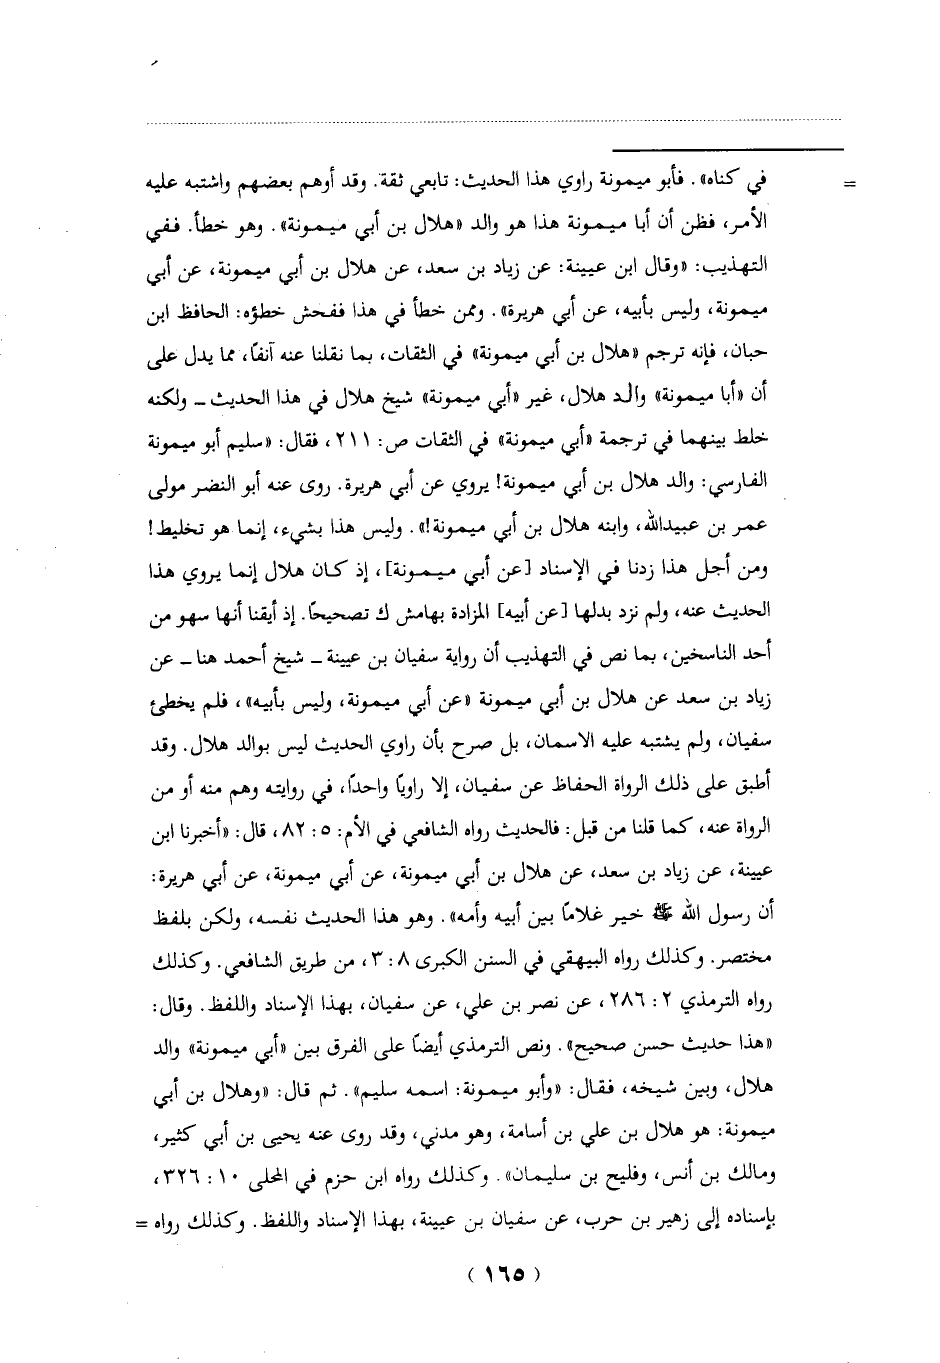 = في كناه». فأبو ميمونة راوي هذا الحديث: تابعي ثقة. وقد أوهم بعضهم واشتبه عليه
الأمر، فظن أن أبا ميمونة هذا هو والد «هلال بن أبي ميمونة». وهو خطأ. ففي
التهذيب: «وقال ابن عيينة: عن زياد بن سعد، عن هلال بن أبي ميمونة، عن أبي
ميمونة، وليس بأبيه، عن أبي هريرة». وممن خطأ في هذا ففحش خطؤه: الحافظ ابن
حبان، فإنه ترجم «هلال بن أبي ميمونة» في الثقات، بما نقلنا عنه آنفًا، مما يدل على
أن «أبا ميمونة» والد هلال، غير «أبي ميمونة» شيخ هلال في هذا الحديث ــ ولكنه
خلط بينهما في ترجمة «أبي ميمونة» في الثقات ص: ٢١١، فقال: «سليم أبو ميمونة
الفارسي: والد هلال بن أبي ميمونة! يروي عن أبي هريرة. روى عنه أبو النضر مولى
عمر بن عبيدالله، وابنه هلال بن أبي ميمونة!». وليس هذا بشيء، إنما هو تخليط!
ومن أجل هذا زدنا في الإسناد [عن أبي ميمونة]، إذ كان هلال إنما يروي هذا
الحديث عنه، ولم نزد بدلها [عن أبيه] المزادة بهامش ك تصحيحًا. إذ أيقنا أنها سهو من
أحد الناسخين، بما نص في التهذيب أن رواية سفيان بن عيينة ــ شيخ أحمد هنا ــ عن
زياد بن سعد عن هلال بن أبي ميمونة «عن أبي ميمونة، وليس بأبيه»، فلم يخطئ
سفيان، ولم يشتبه عليه الاسمان، بل صرح بأن راوي الحديث ليس بوالد هلال. وقد
أطبق على ذلك الرواة الحفاظ عن سفيان، إلا راويًا واحدًا، في روايته وهم منه أو من
الرواة عنه، كما قلنا من قبل: فالحديث رواه الشافعي في الأم: ٥: ٨٢، قال: «أخبرنا ابن
عيينة، عن زياد بن سعد، عن هلال بن أبي ميمونة، عن أبي ميمونة، عن أبي هريرة:
أن رسول الله ﷺ خير غلامًا بين أبيه وأمه». وهو هذا الحديث نفسه، ولكن بلفظ
مختصر. وكذلك رواه البيهقي في السنن الكبرى ٨: ٣، من طريق الشافعي. وكذلك
رواه الترمذي ٢: ٢٨٦، عن نصر بن علي، عن سفيان، بهذا الإسناد واللفظ. وقال:
«هذا حديث حسن صحيح». ونص الترمذي أيضًا على الفرق بين «أبي ميمونة» والد
هلال، وبين شيخه، فقال: «وأبو ميمونة: اسمه سليم». ثم قال: «وهلال بن أبي
ميمونة: هو هلال بن علي بن أسامة، وهو مدني، وقد روى عنه يحيى بن أبي كثير،
ومالك بن أنس، وفليح بن سليمان». وكذلك رواه ابن حزم في المحلى ١٠: ٣٢٦،
بإسناده إلى زهير بن حرب، عن سفيان بن عيينة، بهذا الإسناد واللفظ. وكذلك رواه =
( ١٦٥ )